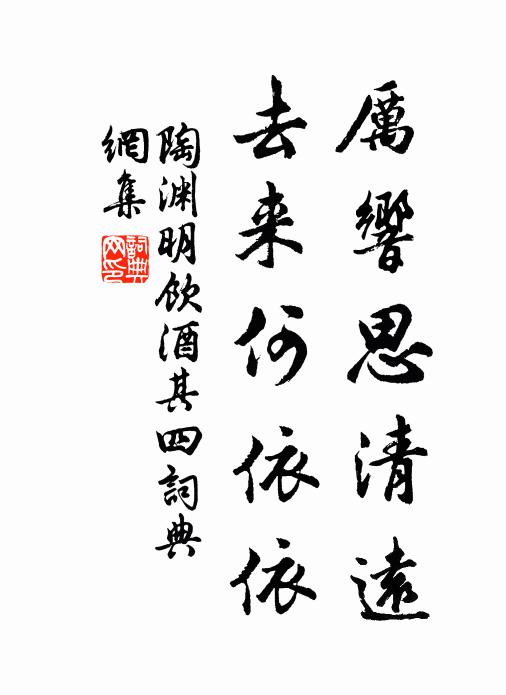 厲響思清遠
去来何依依
陶渊明飲酒其四詞典
網集
詞典
网印